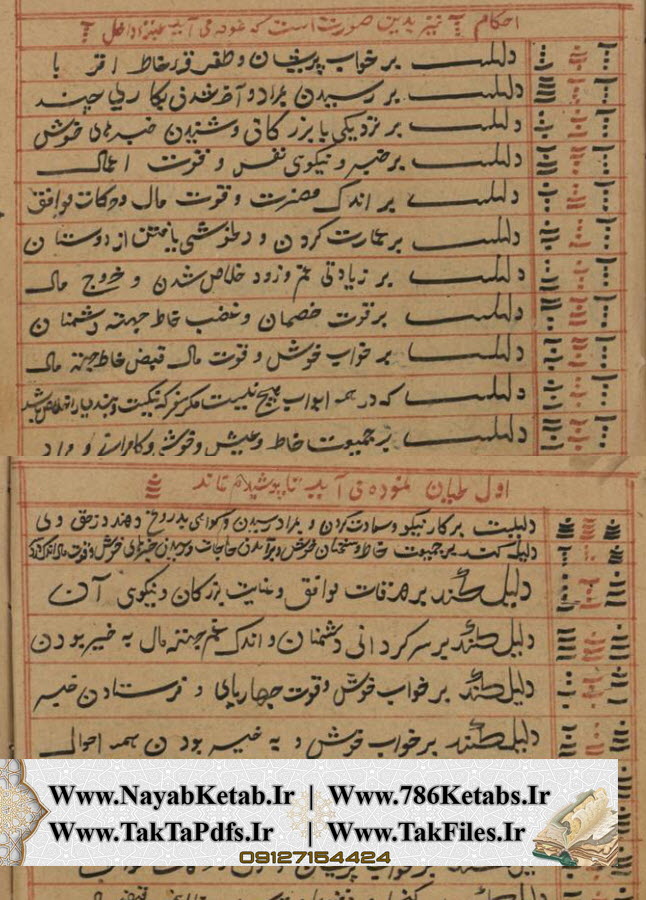 احکام نیز بدین صورت است که نموده می آید
دلیلست بر خواب پریشان و
دلیلست بر رسیدن بمراد و آخر شدن بکاری چند
دلیلست بر نزدیکی با بزرگان و شنیدن خبرهای خوش
دلیلست بر خیر و نیکوی نفس و
دلیلست بر اندک مضرت و قوت مال و حرکات موافق
دلیلست بر تجارت کردن و در خوشی یافتن از دوستان
دلیلست بر زیادتی غم و زود خلاص شدن و خروج مال
دلیلست بر قوت خصمان و غضب خاطر جهته دشمنان
دلیلست بر خواب خوش و قوت مال قبض خاطر جهته مال
دلیلست که در همه ابواب هیچ نیست مگر
دلیلست بر جمعیت خاطر و عیش و خوشی و کامرانی و مراد
اول نموده می آید تا پوشیده نماند
دلیلست بر کار نیکو و سعادت کردن و بمراد رسیدن و گواهی بدروغ دهند در حق وی
دلیل کند بر جمعیت خاطر و سخنان خوش و برآمدن حاجات و رسیدن خبرهای خوش و قوت مال
دلیل کند بر صدقات موافق و عنایت بزرگان و نیکوی آن
دلیل کند بر سرگردانی دشمنان و اندک غم جهته مال به خیر بودن
دلیل کند بر خواب خوش و قوت چهارپای و فرستادن خیر
دلیل کند بر خواب خوش و به خیر بودن همه احوال
Www.NayabKetab.Ir | Www.786Ketabs.Ir
Www.TakTaPdfs.Ir | Www.TakFiles.Ir
09127154424